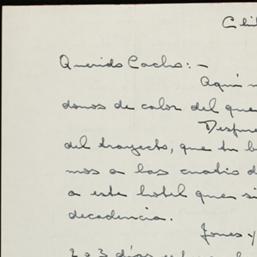 Chi
Querido Cacho:-
Aquí
donos de color del que
Despue
del trayecto, que tu b
mos a las cuatro d
a este hotel que si
decadencia.
Jones y
2 o 3 días